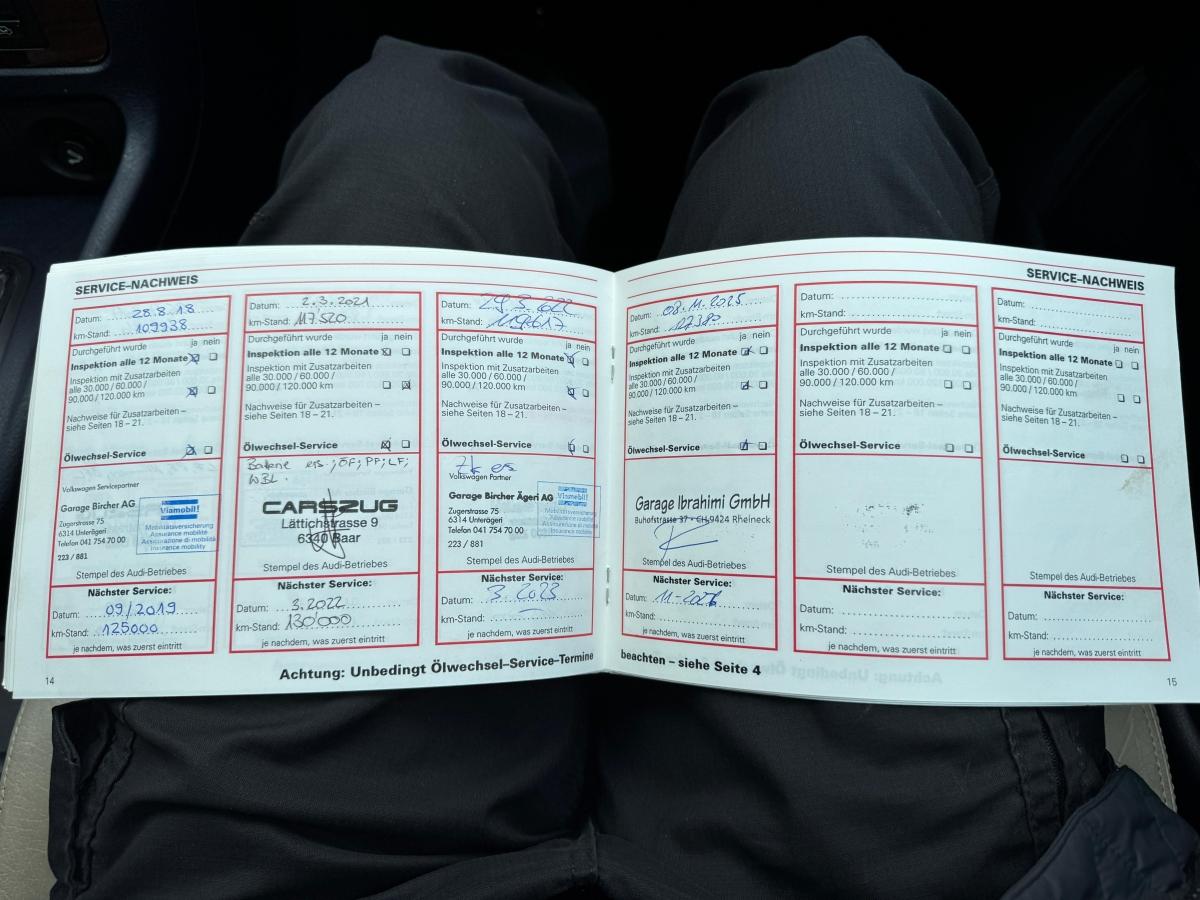 SERVICE–NACHWEIS
Datum: 28.8.18
km-Stand: 109938
Durchgeführt wurde ja nein
Inspektion alle 12 Monate
Inspektion mit Zusatzarbeiten
alle 30.000 / 60.000 /
90.000 / 120.000 km
Nachweise für Zusatzarbeiten –
siehe Seiten 18 – 21.
Ölwechsel-Service
Volkswagen Servicepartner
Garage Bircher AG
Zugerstrasse 75
6314 Unterägeri
Telefon 041 754 70 00
223 / 881
Viamobil!
Mobilitätsversicherung
Assurance mobilité
Assicurazione di mobilità
Insurance mobility
Stempel des Audi-Betriebes
Nächster Service:
Datum: 09/2019
km-Stand: 125000
je nachdem, was zuerst eintritt
Datum: 2.3.2021
km-Stand: 117.520
Durchgeführt wurde ja nein
Inspektion alle 12 Monate
Inspektion mit Zusatzarbeiten
alle 30.000 / 60.000 /
90.000 / 120.000 km
Nachweise für Zusatzarbeiten –
siehe Seiten 18 – 21.
Ölwechsel-Service
ers.; ÖF; PF; LF;
WBL.
CARSZUG
Lättichstrasse 9
6340 Baar
Stempel des Audi-Betriebes
Nächster Service:
Datum: 3.2022
km-Stand: 130'000
je nachdem, was zuerst eintritt
Datum:
km-Stand: 119617
Durchgeführt wurde ja nein
Inspektion alle 12 Monate
Inspektion mit Zusatzarbeiten
alle 30.000 / 60.000 /
90.000 / 120.000 km
Nachweise für Zusatzarbeiten –
siehe Seiten 18 – 21.
Ölwechsel-Service
Zk ers
Volkswagen Partner
Garage Bircher Ägeri AG
Zugerstrasse 75
6314 Unterägeri
Telefon 041 754 70 00
223 / 881
Viamobil!
Mobilitätsversicherung
Assurance mobilité
Assicurazione di mobilità
Insurance mobility
Stempel des Audi-Betriebes
Nächster Service:
Datum: 3.2023
km-Stand:
je nachdem, was zuerst eintritt
Achtung: Unbedingt Ölwechsel–Service–Termine
14
SERVICE–NACHWEIS
Datum: 08.11.2025
km-Stand:
Durchgeführt wurde ja nein
Inspektion alle 12 Monate
Inspektion mit Zusatzarbeiten
alle 30.000 / 60.000 /
90.000 / 120.000 km
Nachweise für Zusatzarbeiten –
siehe Seiten 18 – 21.
Ölwechsel-Service
Garage Ibrahimi GmbH
Buhofstrasse 37 - CH-9424 Rheineck
Stempel des Audi-Betriebes
Nächster Service:
Datum: 11-2026
km-Stand:
je nachdem, was zuerst eintritt
Datum:
km-Stand:
Durchgeführt wurde ja nein
Inspektion alle 12 Monate
Inspektion mit Zusatzarbeiten
alle 30.000 / 60.000 /
90.000 / 120.000 km
Nachweise für Zusatzarbeiten –
siehe Seiten 18 – 21.
Ölwechsel-Service
Stempel des Audi-Betriebes
Nächster Service:
Datum:
km-Stand:
je nachdem, was zuerst eintritt
Datum:
km-Stand:
Durchgeführt wurde ja nein
Inspektion alle 12 Monate
Inspektion mit Zusatzarbeiten
alle 30.000 / 60.000 /
90.000 / 120.000 km
Nachweise für Zusatzarbeiten –
siehe Seiten 18 – 21.
Ölwechsel-Service
Stempel des Audi-Betriebes
Nächster Service:
Datum:
km-Stand:
je nachdem, was zuerst eintritt
beachten – siehe Seite 4
15